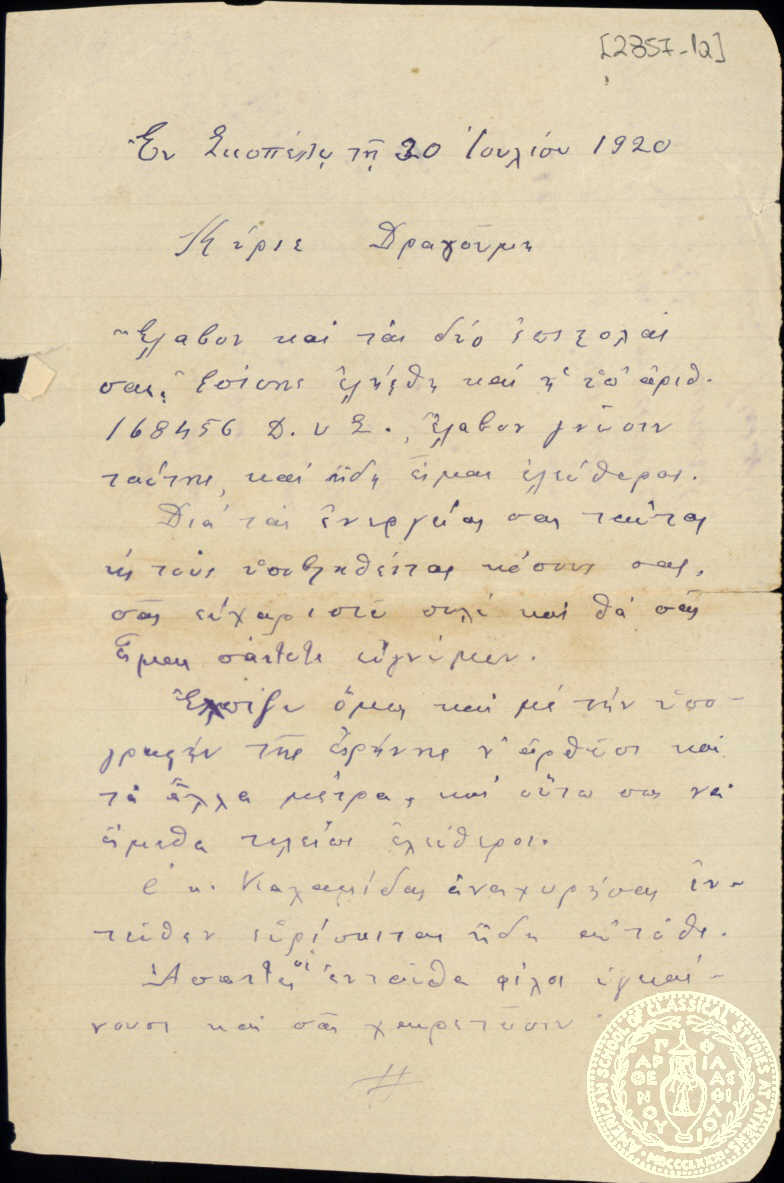 [2357-12]
Ἐν Σκοπέλῳ τῇ 30 Ἰουλίου 1920
Κύριε Δραγούμη
Ἔλαβον καὶ τὰς δύο ἐπιστολάς
σας, Ἐπίσης ἐλήφθη καὶ ἡ ὑπ' ἀριθ.
168456 Δ.υΣ., Ἔλαβον γνῶσιν
ταύτης, καὶ ἤδη εἶμαι ἐλεύθερος.
Διὰ τὰς ἐνεργείας σας ταύτας
κὶ τοὺς ὑποβληθέντας κόπους σας,
σᾶς εὐχαριστῶ πολὺ καὶ θὰ σᾶς
εἶμαι πάντοτε εὐγνώμων.
Ἐλπίζω ὅμως καὶ μὲ τὴν ὑπο-
γραφὴν τῆς εἰρήνης ν' ἀρθῶσι καὶ
τὰ ἄλλα μέτρα, καὶ οὕτω πως νὰ
εἴμεθα τελείως ἐλεύθεροι.
Ὁ κ. Καλαμίδας ἀναχωρήσας ἐν-
τεῦθεν εὑρίσκεται ἤδη αὐτόθι.
Ἅπαντες οἱ ἐνταῦθα φίλοι ὑγιαί-
νουσι καὶ σᾶς χαιρετῶσιν
AMERICAN SCHOOL OF CLASSICAL STUDIES AT ATHENS
MDCCCLXXXI
ΠΑΡΘΕΝΟΥ ΦΙΛΑΣ ΦΙΛΟΙ